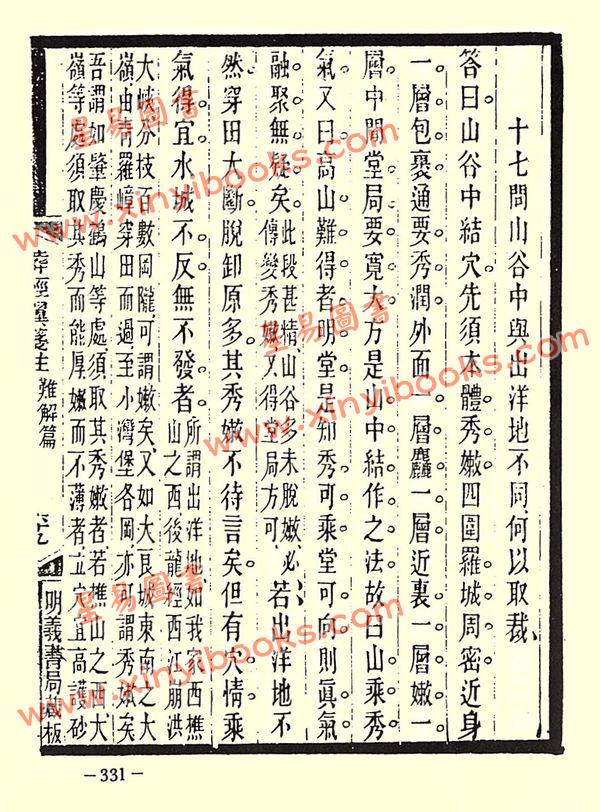 十七問山谷中與出洋地不同何以取裁
答曰山谷中結穴先須本體秀嫩四圍羅城周密近身
一層包裹通要秀潤外而一層麤一層近裏一層嫩一
層中間堂局要寬大方是山中結作之法故曰山乘秀
氣又曰高山難得者明堂是知秀可乘堂可向則眞氣
融聚無疑矣此段甚情山谷多未脫嫩必傳變秀嫩又得堂局方可若出洋地不
然穿田大斷脫卸原多其秀嫩不待言矣但有穴情乘
氣得宜水城不反無不發者所謂出洋地如我家西樵山之西後龍經西江崩洪
大峽分枝百數岡隴可謂嫩矣又如大良城東南之大
嶺由青羅嶂穿田而過至小灣堡各岡亦可謂秀嫩矣
吾謂如肇慶鶴山等處須取其秀嫩者若樵山之西大
嶺等處須取其秀而能厚嫩而不薄者立穴宜高護砂
葬經翼箋註 難解篇
明義書局藏板
-331-
星易圖書
www.xinyibooks.com
星易圖書
www.xinyibooks.com
星易圖書
www.xinyibooks.com